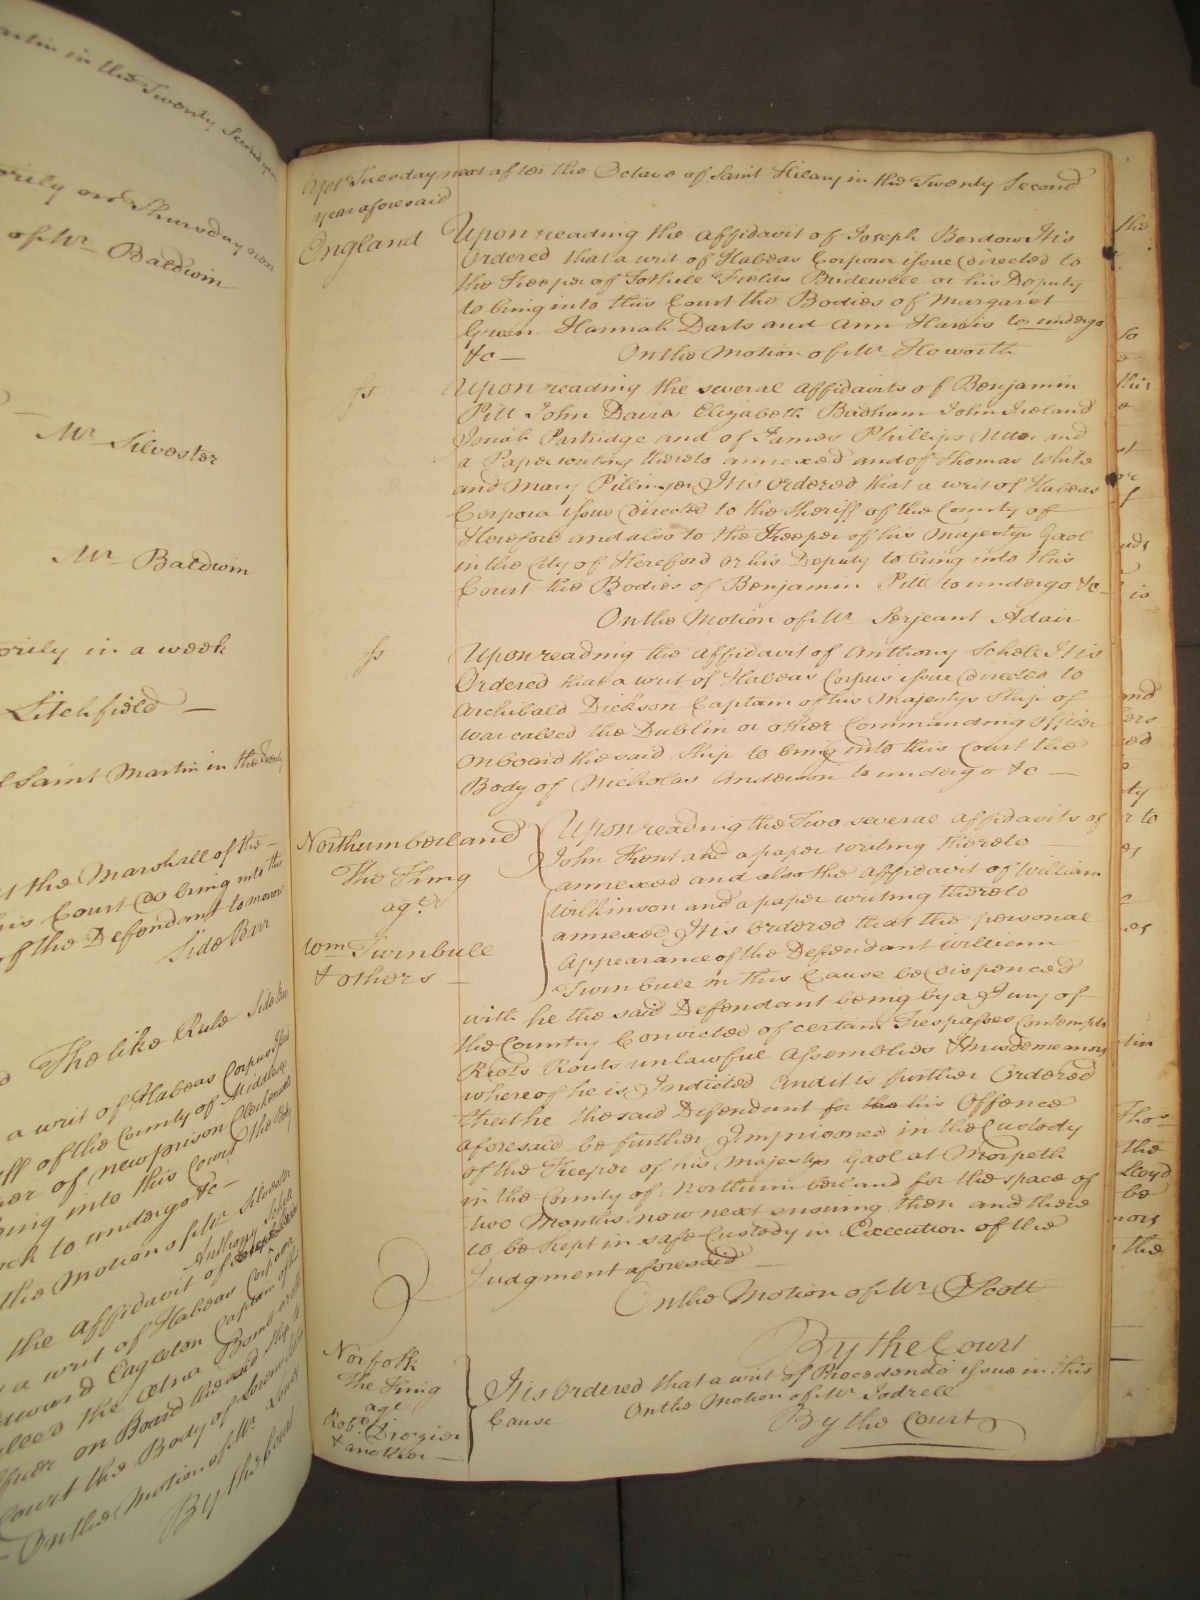 Martin in the Twenty Second year
orily on Thursday
of Mr Baldwin
Mr Silvester
Mr Baldwin
orily in a week
Litchfield
Saint Martin in the Twenty
the Marshall of the
his Court do bring into this
of the Defendant to morrow
Side Barr
The like Rule Side Barr
a writ of Habeas Corpus Issue
of the County of Middlesex
of new prison Clerkenwell
bring into this Court the Body
to undergo &c
the Motion of Mr Silvester
Anthony Schole
the affidavit of
a writ of Habeas Corpora
Edward Eagleton Captain of his
called the Ætna Bomb or other
on Board the said Ship to
Court the Body of
On the Motion of Mr
By the Court
next after the Octave of Saint Hilary in the Twenty Second
year aforesaid
England
Upon reading the Affidavit of Joseph Berdow It is
Ordered that a writ of Habeas Corpora issue directed to
the Keeper of Tothill Fields Bridewell or his Deputy
to bring into this Court the Bodies of Margaret
Green Hannah Darts and Ann Harris to undergo
&c — On the Motion of Mr Howorth
ss
Upon reading the several Affidavits of Benjamin
Pitt John Davies Elizabeth Badham John Ireland
Josiah Partridge and of James Phillips and
a Paper writing thereto annexed and of Thomas White
and Mary It is Ordered that a writ of Habeas
Corpora issue directed to the Sheriff of the County of
Hereford and also to the Keeper of his Majestys Gaol
in the City of Hereford or his Deputy to bring into this
Court the Bodies of Benjamin Pitt to undergo &c —
On the Motion of Mr Serjeant Adair
ss
Upon reading the Affidavit of Anthony Schole It is
Ordered that a writ of Habeas Corpus issue directed to
Archibald Dickson Captain of his Majestys Ship of
war called the Dublin or other Commanding Officer
on board the said Ship to bring into this Court the
Body of Nicholas Anderson to undergo &c —
Northumberland
The King
agst
Wm Turnbull
& others —
Upon reading the Two several Affidavits of
John Trent and a paper writing thereto
annexed and also the Affidavit of William
Wilkinson and a paper writing thereto
annexed It is Ordered that the personal
Appearance of the Defendant William
Turnbull in this Cause be dispenced
with he the said Defendant being by a Jury of
the Country Convicted of certain Trespasses Contempts
Riots Routs unlawful Assemblies & misdemeanors
whereof he is Indicted and it is further Ordered
that he the said Defendant for his Offence
aforesaid be further Imprisoned in the Custody
of the Keeper of his Majestys Gaol at Morpeth
in the County of Northumberland for the space of
two Months now next ensuing then and there
to be kept in safe Custody in Execution of the
Judgment aforesaid —
On the Motion of Mr Scott
By the Court
Norfolk
The King
agt
Robt Drozier
& another —
It is Ordered that a writ of Procedendo issue in this
Cause On the Motion of Mr Jodrell
By the Court